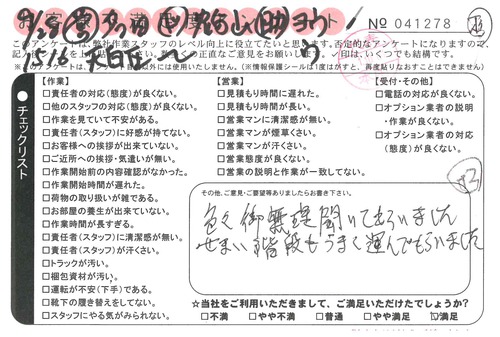 № 041278
このアンケートは、弊社作業スタッフのレベル向上に役立てたいと思います。否定的なアンケートになりますので、
✓印は、いくつでも結構です。
チェックリスト
【作業】
□責任者の対応(態度)が良くない。
□他のスタッフの対応(態度)が良くない。
□作業を見ていて不安がある。
□責任者(スタッフ)に好感が持てない。
□お客様への挨拶が出来ていない。
□ご近所への挨拶・気遣いが無い。
□作業開始前の内容確認がなかった。
□作業開始時間が遅れた。
□荷物の取り扱いが雑である。
□お部屋の養生が出来ていない。
□作業時間が長すぎる。
□責任者(スタッフ)に清潔感が無い。
□責任者(スタッフ)が汗くさい。
□トラックが汚い。
□梱包資材が汚い。
□運転が不安(下手)である。
□靴下の履き替えをしてない。
□スタッフにやる気がみられない。
【営業】
□見積もり時間に遅れた。
□見積もり時間が長い。
□営業マンに清潔感が無い。
□営業マンが煙草くさい。
□営業マンが汗くさい。
□営業態度が良くない。
□営業の説明と作業が一致してない。
【受付・その他】
□電話の対応が良くない。
□オプション業者の説明
・作業が良くない。
□オプション業者の対応
(態度)が良くない。
その他、ご意見・ご要望等ありましたらお書き下さい。
色々御無理聞いてもらいました
せまい階段もうまく運んでもらいました
☆当社をご利用いただきまして、ご満足いただけたでしょうか?
□不満 □やや不満 □普通 □やや満足 ☑満足